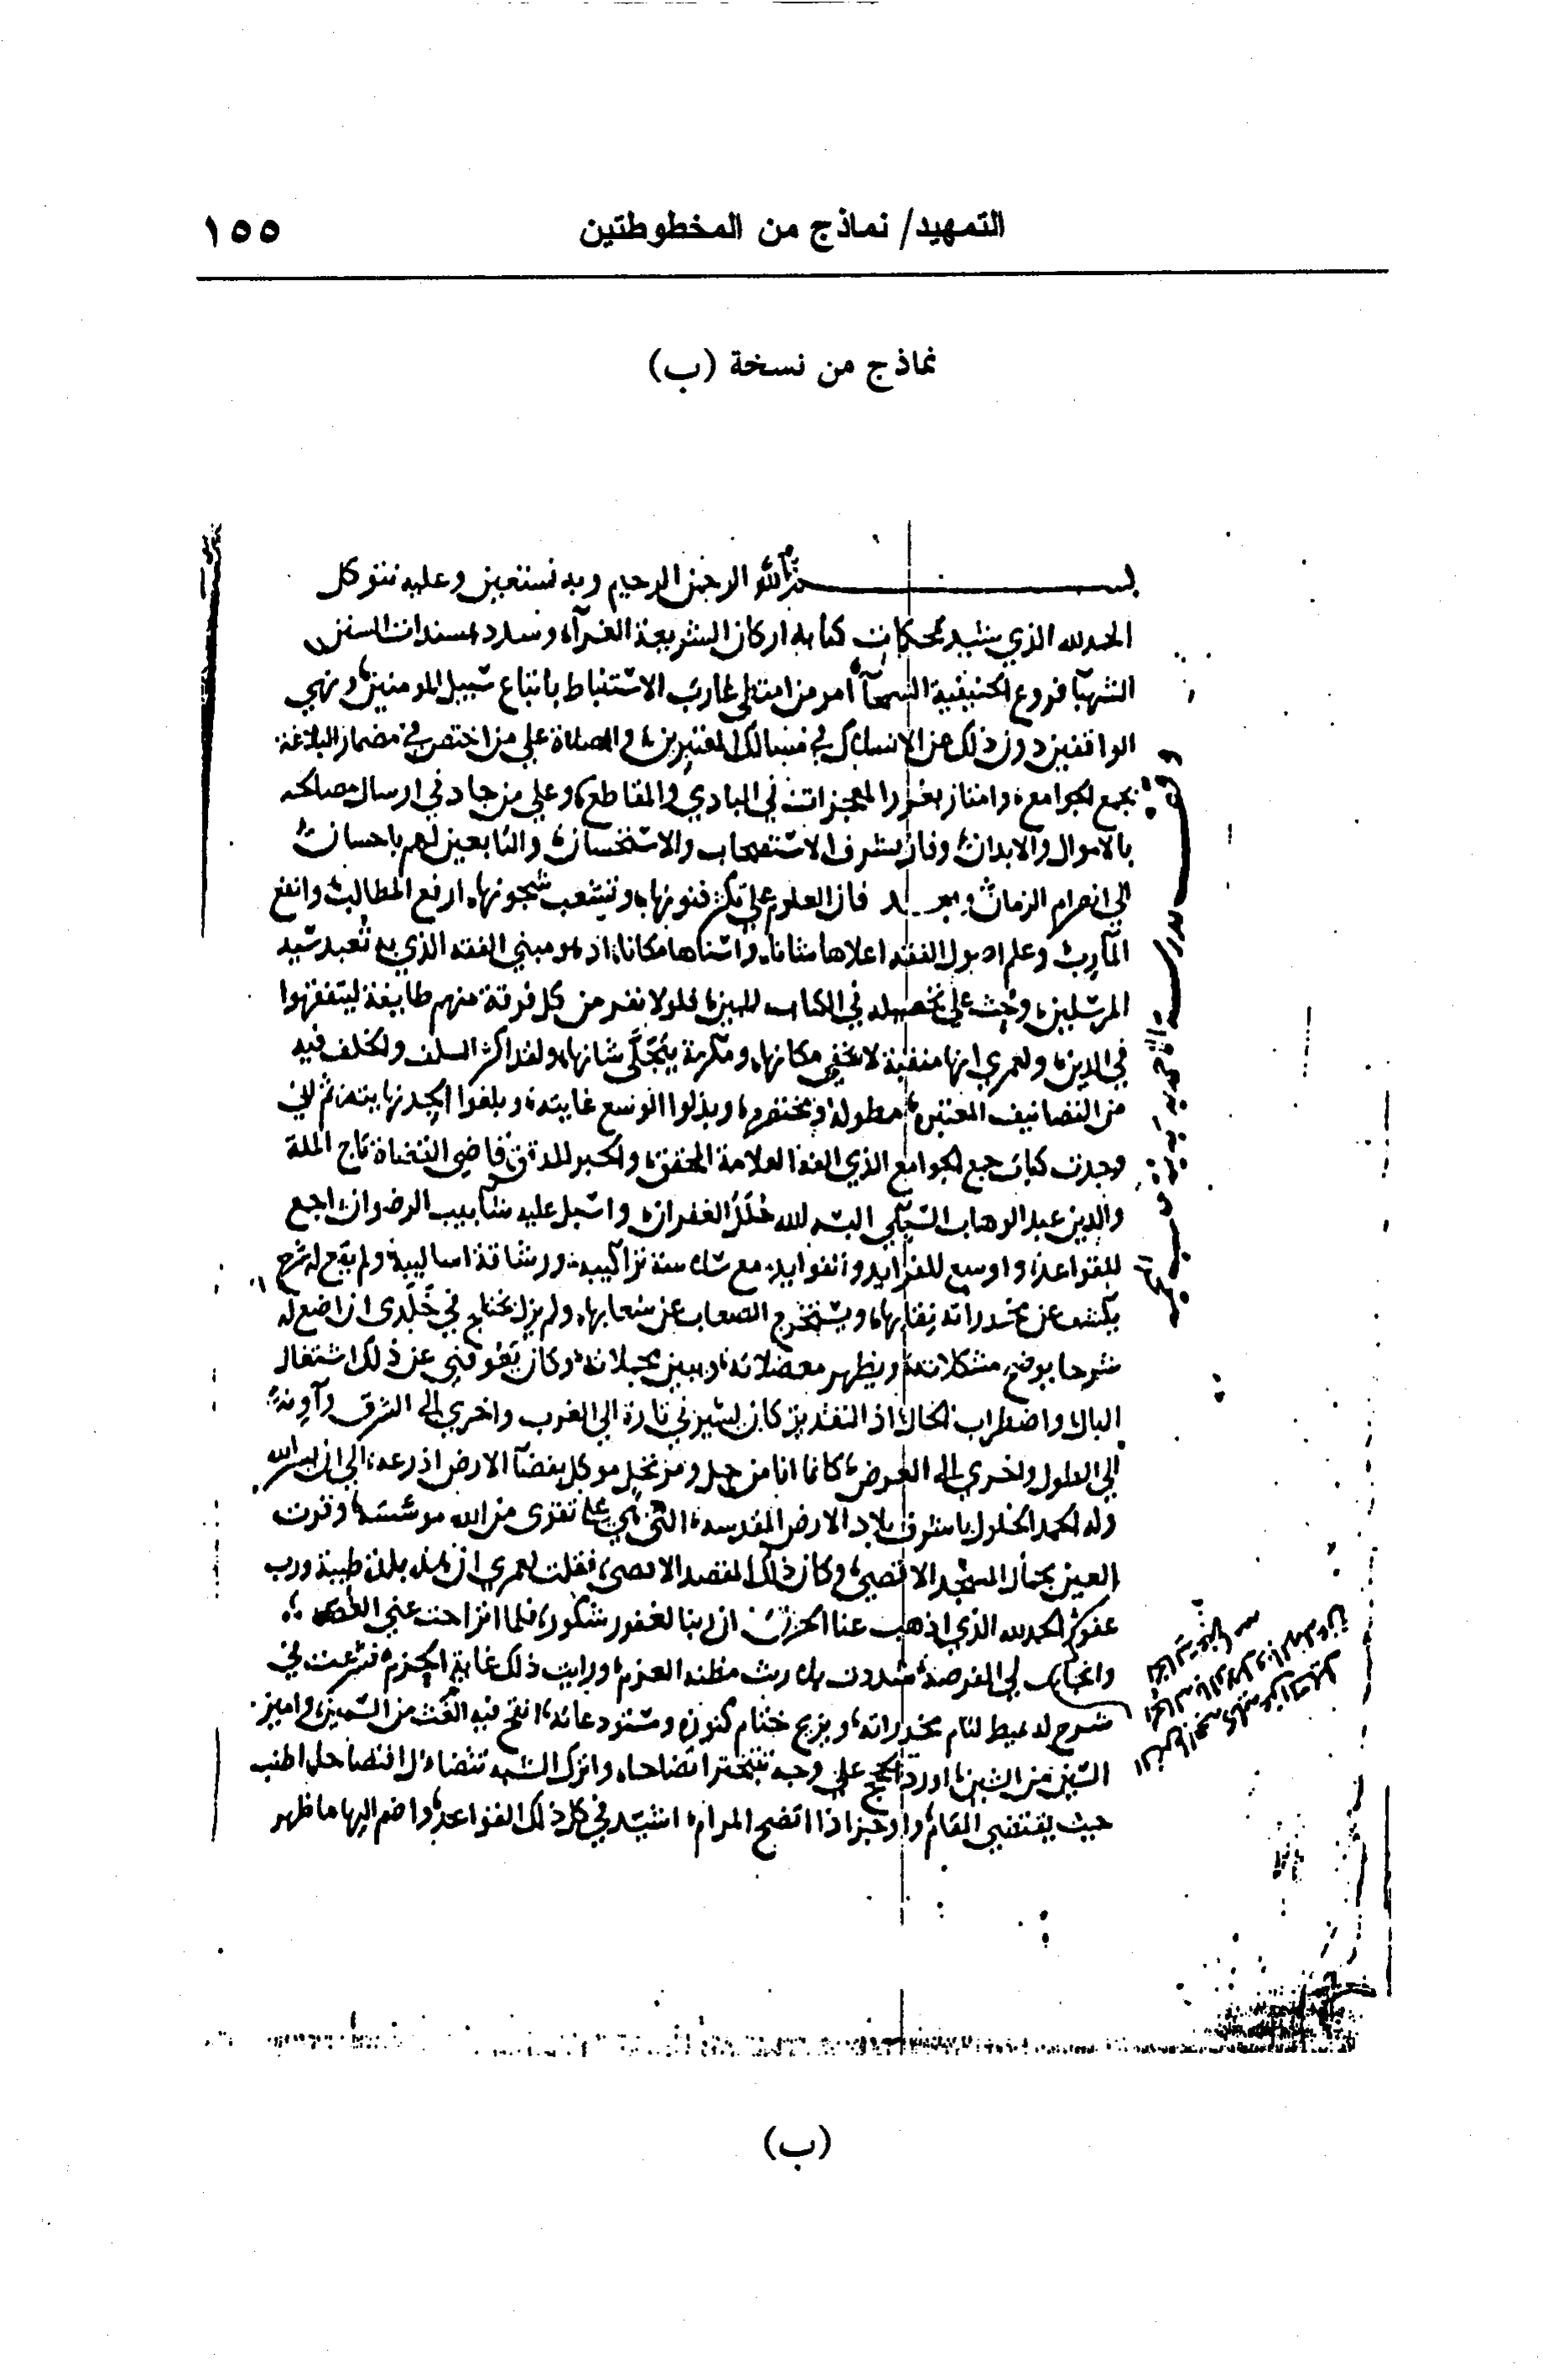 التمهيد/ نماذج من المخطوطتين ١٥٥
نماذج من نسخة (ب)
بسم الله الرحمن الرحيم وبه نستعين وعليه نتوكل
الحمد لله الذي شيد بمحكمات كتابه اركان الشريعة الغرآء وسدد بمسندات السنن
الشهبا فروع الحنيفية السمحآ امر من امتطى لمارب الاستنباط باتباع سبيل المومنين ونهى
الواقفين دون ذلك عن الانسلاك في مسالك المفترين والصلاة علي من اختص في مضمار البلاغة
بجمع الجوامع وامتاز بغرر المعجزات في المبادي والمقاطع وعلي من جاد في ارسال مصالحه
بالاموال والابدان وفاز بشرف الاستصحاب والاستحسان والتابعين لهم باحسان
الي انصرام الزمان وبعد فان العلوم علي تكثر فنونها وتشعب شجونها ارفع المطالب وانفع
المآرب وعلم اصول الفقه اعلاها شانا واسناها مكانا اذ هو مبني الفقه الذي به تعبد سيد
المرسلين وحث علي تحصيله في الكتاب المبين فلولا نفر من كل فرقة منهم طايفة ليتفقهوا
في الدين ولعمري انها منقبة لا يخفي مكانها ومكرمة يتجلي شانها ولقد اكثر السلف والخلف فيه
من التصانيف المعتبره مطولة ومختصره وبذلوا الوسع غايته وبلغوا الجد نهايته ثم اني
وجدت كتاب جمع الجوامع الذي الفه العلامة المحقق والحبر المدقق قاضي القضاة تاج الملة
والدين عبد الوهاب السبكي البسه الله حلل الغفران واسبل عليه شآبيب الرضوان اجمع
للقواعد واوسع للفرايد والفوايد مع سلاسة تراكيبه ورشاقة اساليبه ولم يقع له شرح
يكشف عن مخدراته نقابها ويستخرج الصعاب عن شعابها ولم يزل يختلج في خلدى ان اضع له
شرحا يوضح مشكلاته ويظهر معضلاته ويبين مجملاته وكان يعوقني عن ذلك اشتغال
البال واضطراب الحال اذ التقدير كان يسيرني تارة الي الغرب واخري الي الشرق وآونة
الي الطول واخري الي العرض كانما انا من وجل ومن نخل موكل بفضآ الارض اذرعه الي ان يسر الله
وله الحمد الحلول باشرف بلاد الارض المقدسه التي هي علي تقوى من الله موسسة وقرت
العين بجمال المسجد الاقصي وكان ذلك المقصد الاقصى فقلت لعمري ان هذه بلدة طيبة ورب
غفور الحمد لله الذي اذهب عنا الحزن ان ربنا لغفور شكور فلما انزاحت عني
لي الفرصه مظنه العزم ورايت ذلك غاية الحزم شرعت في
شرح له يميط لثام مخدراته ويزيح ختام كنوزه ومستودعاته انقح فيه الغث من السمين واميز
الشين من اورد الحجج علي وجه تتبختر اتضاحا واترك الشبه تتضاءل افتضاحا اطنب
حيث يقتضي المقام واوجز اذا اتضح المرام اشيد في كل ذلك القواعد واضم اليها ما ظهر
(ب)